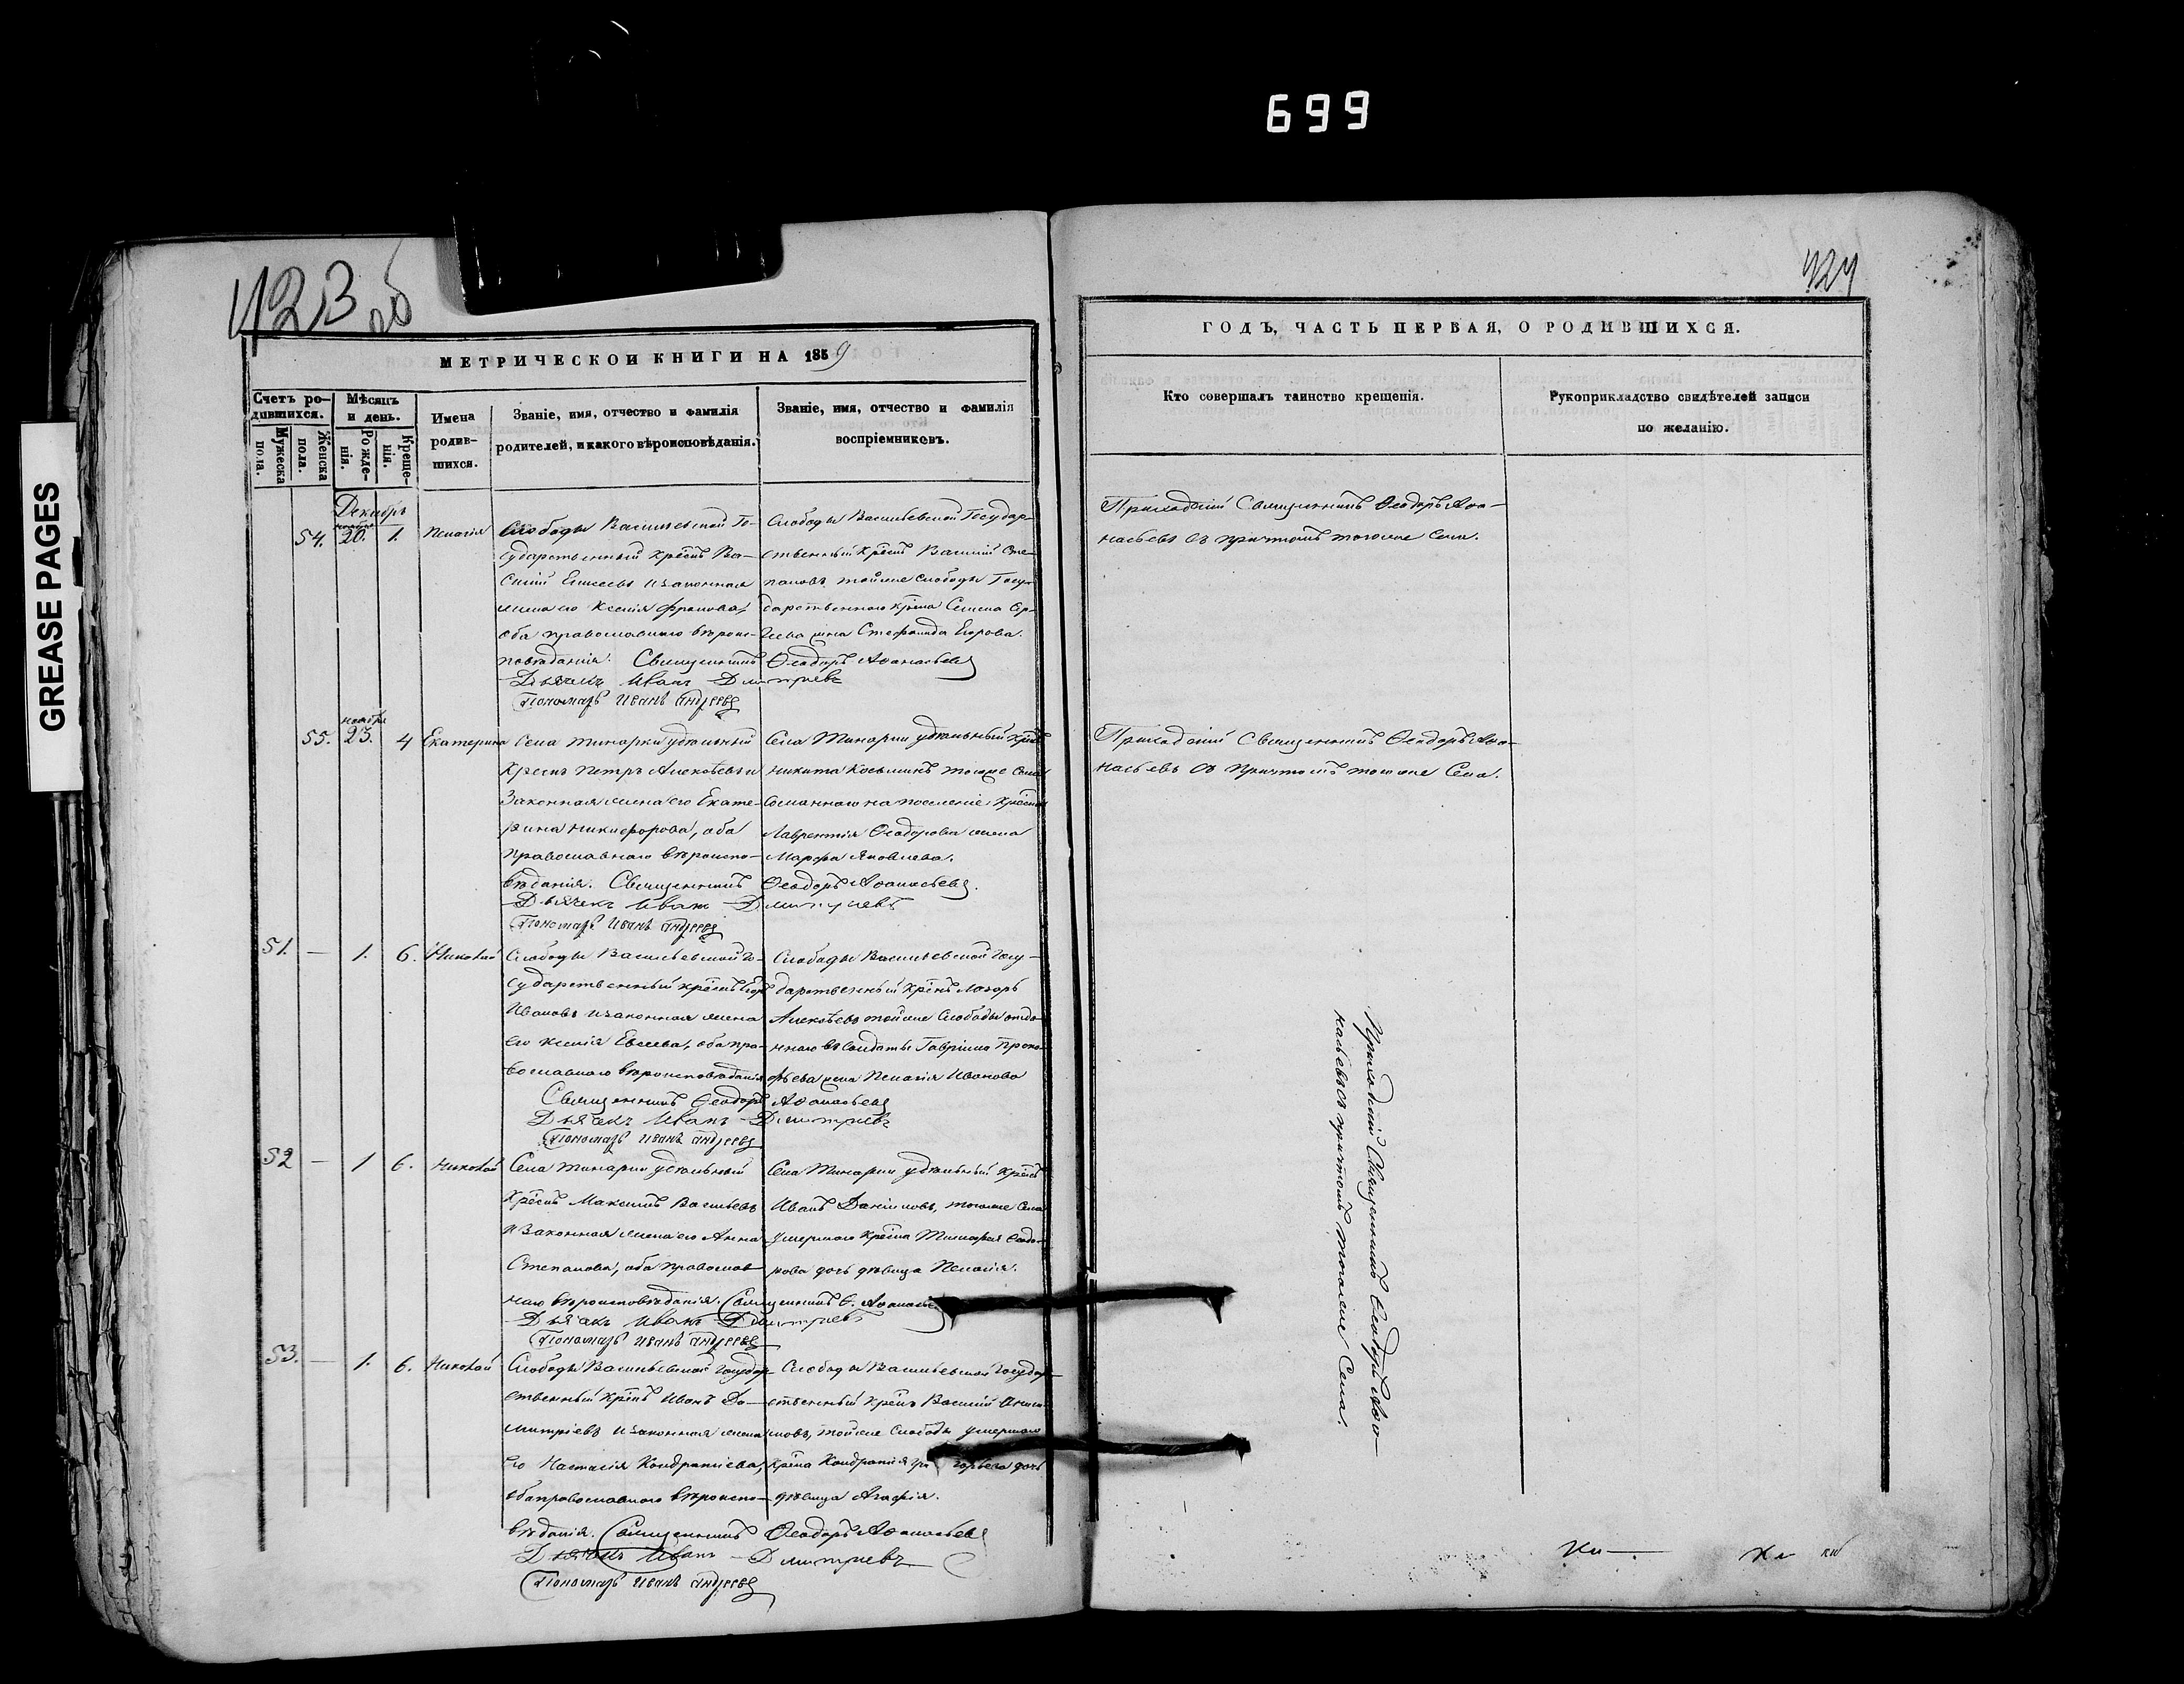 699
GREASE PAGES
423 об
424
МЕТРИЧЕСКОЙ КНИГИ НА 1859
ГОДЪ, ЧАСТЬ ПЕРВАЯ, О РОДИВШИХСЯ.
Счетъ ро-
дившихся.
Мужеска
пола.
Женска
пола.
Мѣсяцъ
и день.
Рожде-
нія.
Креще-
нія.
Имена
родив-
шихся.
Званіе, имя, отчество и фамилія
родителей, и какого вѣроисповѣданія.
Званіе, имя, отчество и фамилія
воспріемниковъ.
Кто совершалъ таинство крещенія.
Рукоприкладство свидѣтелей записи
по желанію.
Декабрь
54. ноября 20. 1. Пелагія
Слободы Васильевской Го-
сударственный крѣснъ Ва-
силій Елисеевъ и законная
жена его Ксенія
оба православнаго вѣроис-
повѣданія. Священникъ Ѳеодоръ Аѳанасьевъ
Дьячекъ Иванъ Дмитріевъ
Пономарь Иванъ Андреевъ
Слободы Васильевской Государ-
ственный крѣснъ Василій Сте-
пановъ, тойже слободы Госу-
дарственнаго крѣсна Семена Ер-
жена Стефанида Егорова.
Приходскій Священникъ Ѳеодоръ Аѳа-
насьевъ съ причтомъ тогоже Села.
55. ноября 23. 4 Екатерина
Села Тинарки удѣльный
крѣснъ Петръ Алексѣевъ и
Законная жена его Екате-
рина Никифорова, оба
православнаго вѣроиспо-
вѣданія. Священникъ Ѳеодоръ Аѳанасьевъ.
Дьячекъ Иванъ Дмитріевъ
Пономарь Иванъ Андреевъ
Села Тинарки удѣльный крѣснъ
Никита Косьминъ тогоже Села
Сосланнаго на поселеніе крѣсна
Лаврентія Ѳеодорова жена
Марфа Яковлева.
Приходскій Священникъ Ѳеодоръ Аѳа-
насьевъ съ причтомъ тогоже Села.
51. — 1. 6. Николай
Слободы Васильевской Го-
сударственный крѣснъ Егоръ
Ивановъ и законная жена
его Ксенія Евсеева, оба пра-
вославнаго вѣроисповѣданія
Священникъ Ѳеодоръ Аѳанасьевъ
Дьячекъ Иванъ Дмитріевъ
Пономарь Иванъ Андреевъ
Слободы Васильевской Госу-
дарственный крѣснъ Лазарь
Алексѣевъ тойже Слободы отда-
ннаго въ Солдаты Гавріила Проко-
фьева жена Пелагія Иванова
52 — 1 6. Николай
Села Тинарки удѣльный
крѣснъ Максимъ Васильевъ
и Законная жена его Анна
Степанова, оба православ-
наго вѣроисповѣданія. Священникъ Ѳ. Аѳанасьевъ
Дьячекъ Иванъ Дмитріевъ
Пономарь Иванъ Андреевъ
Села Тинарки удѣльный крѣснъ
Иванъ Даниловъ, тогоже Села
умершаго крѣсна Тимофея Ѳеодо-
рова дочь дѣвица Пелагія.
53. — 1. 6. Николай
Слободы Васильевской Государ-
ственный крѣснъ Иванъ Ди-
митріевъ и законная жена
его Настасія Кондратіева,
оба православнаго вѣроиспо-
вѣданія. Священникъ Ѳеодоръ Аѳанасьевъ
Дьячекъ Иванъ Дмитріевъ
Пономарь Иванъ Андреевъ
Слободы Васильевской Государ-
ственный крѣснъ Василій
тойже Слободы умершаго
крѣсна Кондратія дочь
дѣвица Агафія.
Приходскій Священникъ Ѳеодоръ Аѳа-
насьевъ съ причтомъ тогоже Села.